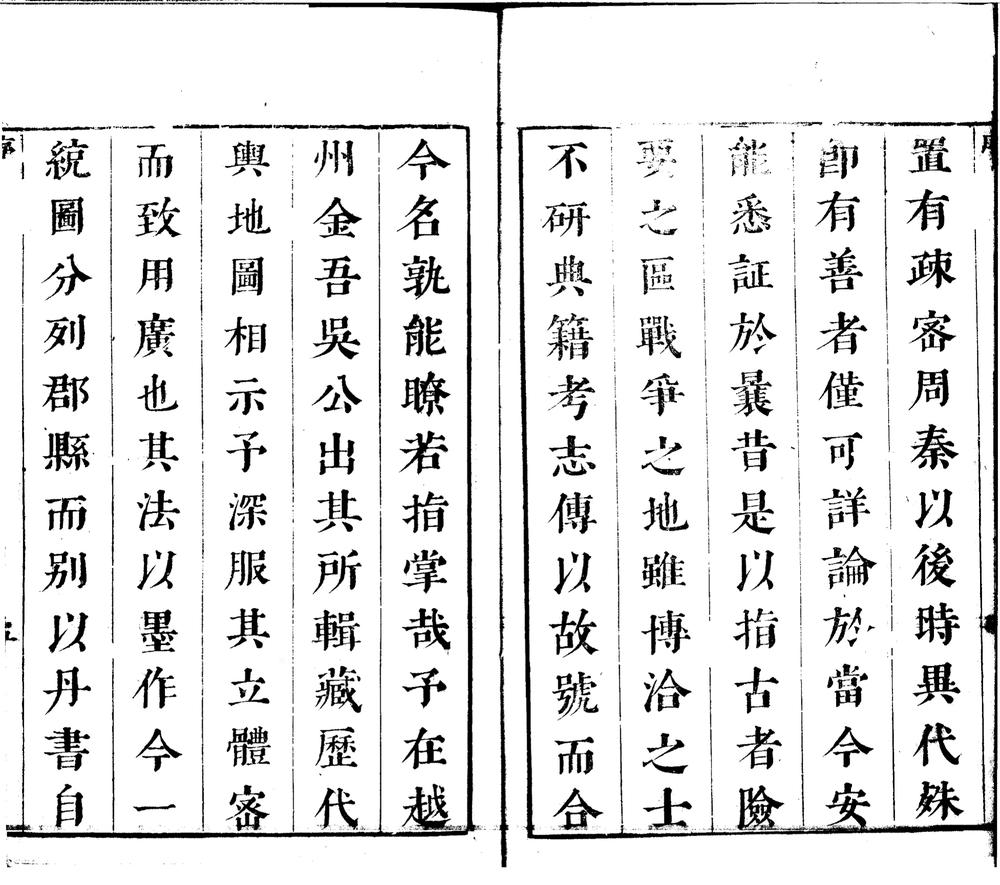 置有疎密周秦以後時異代殊
卽有善者僅可詳論於當今安
能悉証於曩昔是以指古者險
要之區戰爭之地雖博洽之士
不研典籍考志傳以故號而合
今名孰能瞭若指掌哉予在越
州金吾吳公出其所輯藏歷代
輿地圖相示予深服其立體密
而致用廣也其法以墨作今一
統圖分列郡縣而別以丹書自